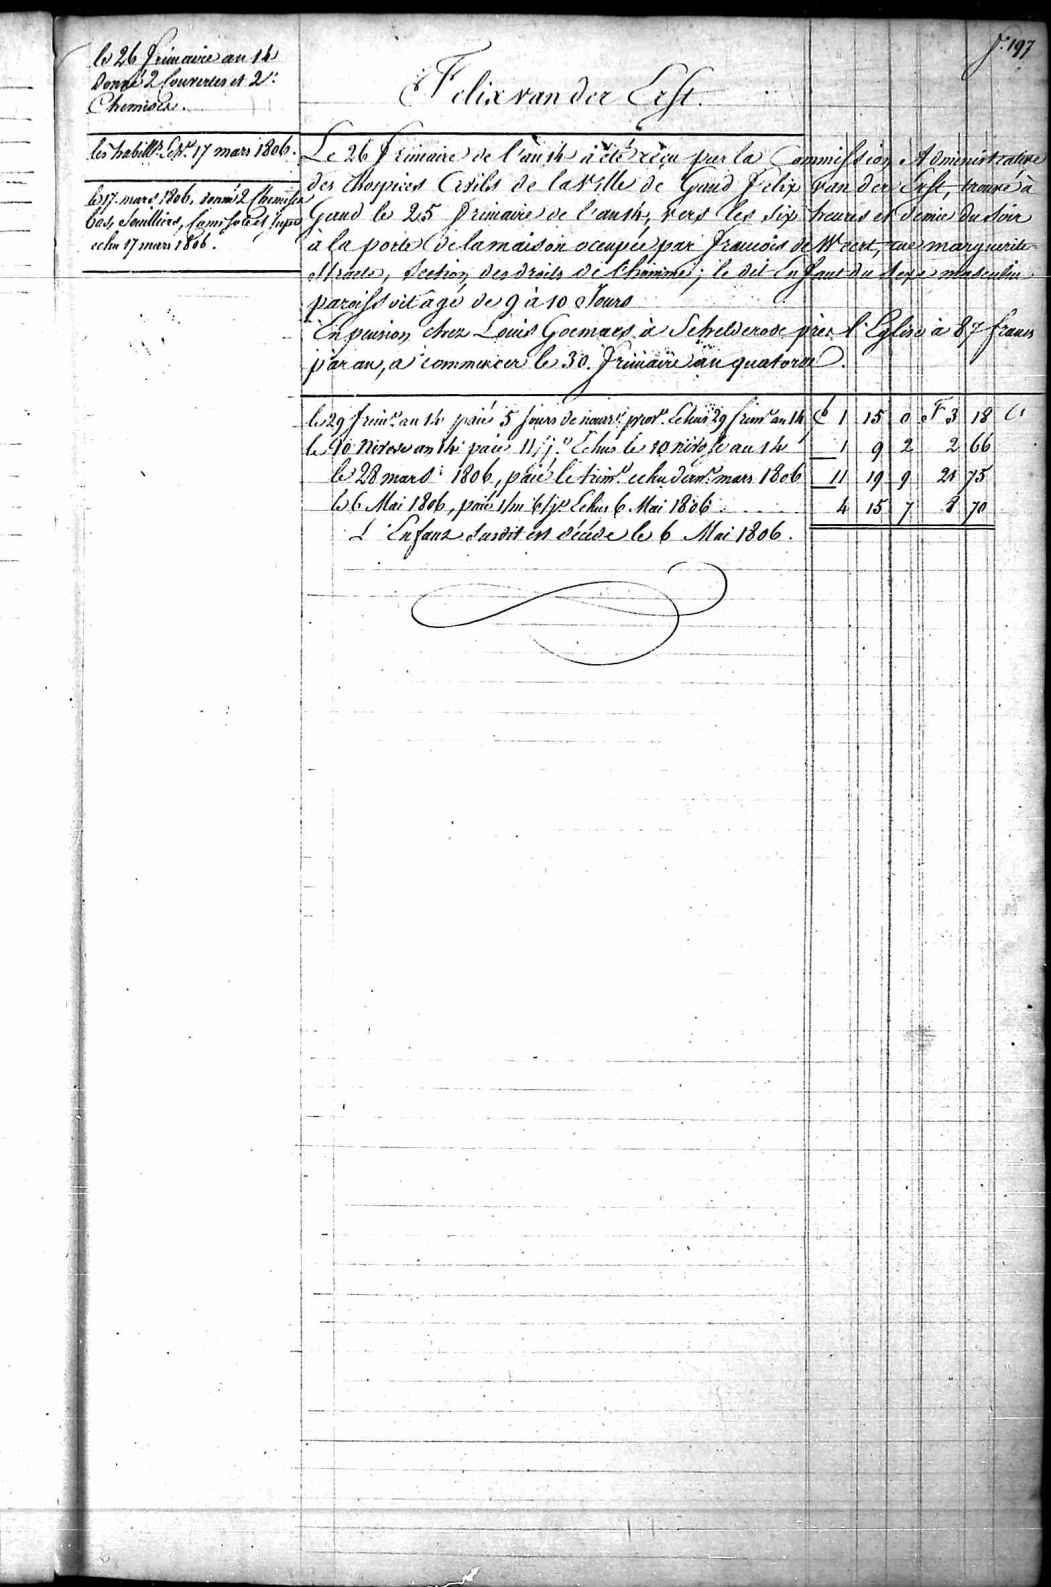 f.° 197
le 26 frimaire an 14
donné 2 Couvertes et 2.
Chemises.
Felix van der Erst.
les habill.ts Ech.s 17 mars 1806.
le 17 mars 1806, donné 2 Chemises
bas, Soulliers, Camisole et jupe
echu 17 mars 1806.
Le 26 frimaire de l'an 14 à été reçu par la Commission Administrative
des Hospices Civils de la Ville de Gand Felix van der Erst, trouvé à
Gand le 25 frimaire de l'an 14, vers les six heures et demie du soir
à la porte de la maison occupée par francois de Weert, rue marguerite
straete, Section des droits de l'homme; le dit Enfant du Sexe masculin
paroissoit agé de 9 à 10 Jours
En pension chez Louis Goemaes à Schelderode près l'Eglise à 87 francs
par an, à commencer le 30. frimaire an quatorze.
le 29 frim.e an 14 paié 5 jours de nourr.e prov.e Echus 29 frim.e an 14 £ 1 15 0 F 3 18
le 10 Nivose an 14 paié 11/j.s Echus le 10 nivose an 14 1 9 2 2 66
le 28 mars 1806, paié le trim.e echu dern.r mars 1806 11 19 9 21 75
le 6 Mai 1806, paié 1/m 6/j.s Echus 6 Mai 1806 4 15 7 8 70
L'Enfant Susdit est décédé le 6 Mai 1806.